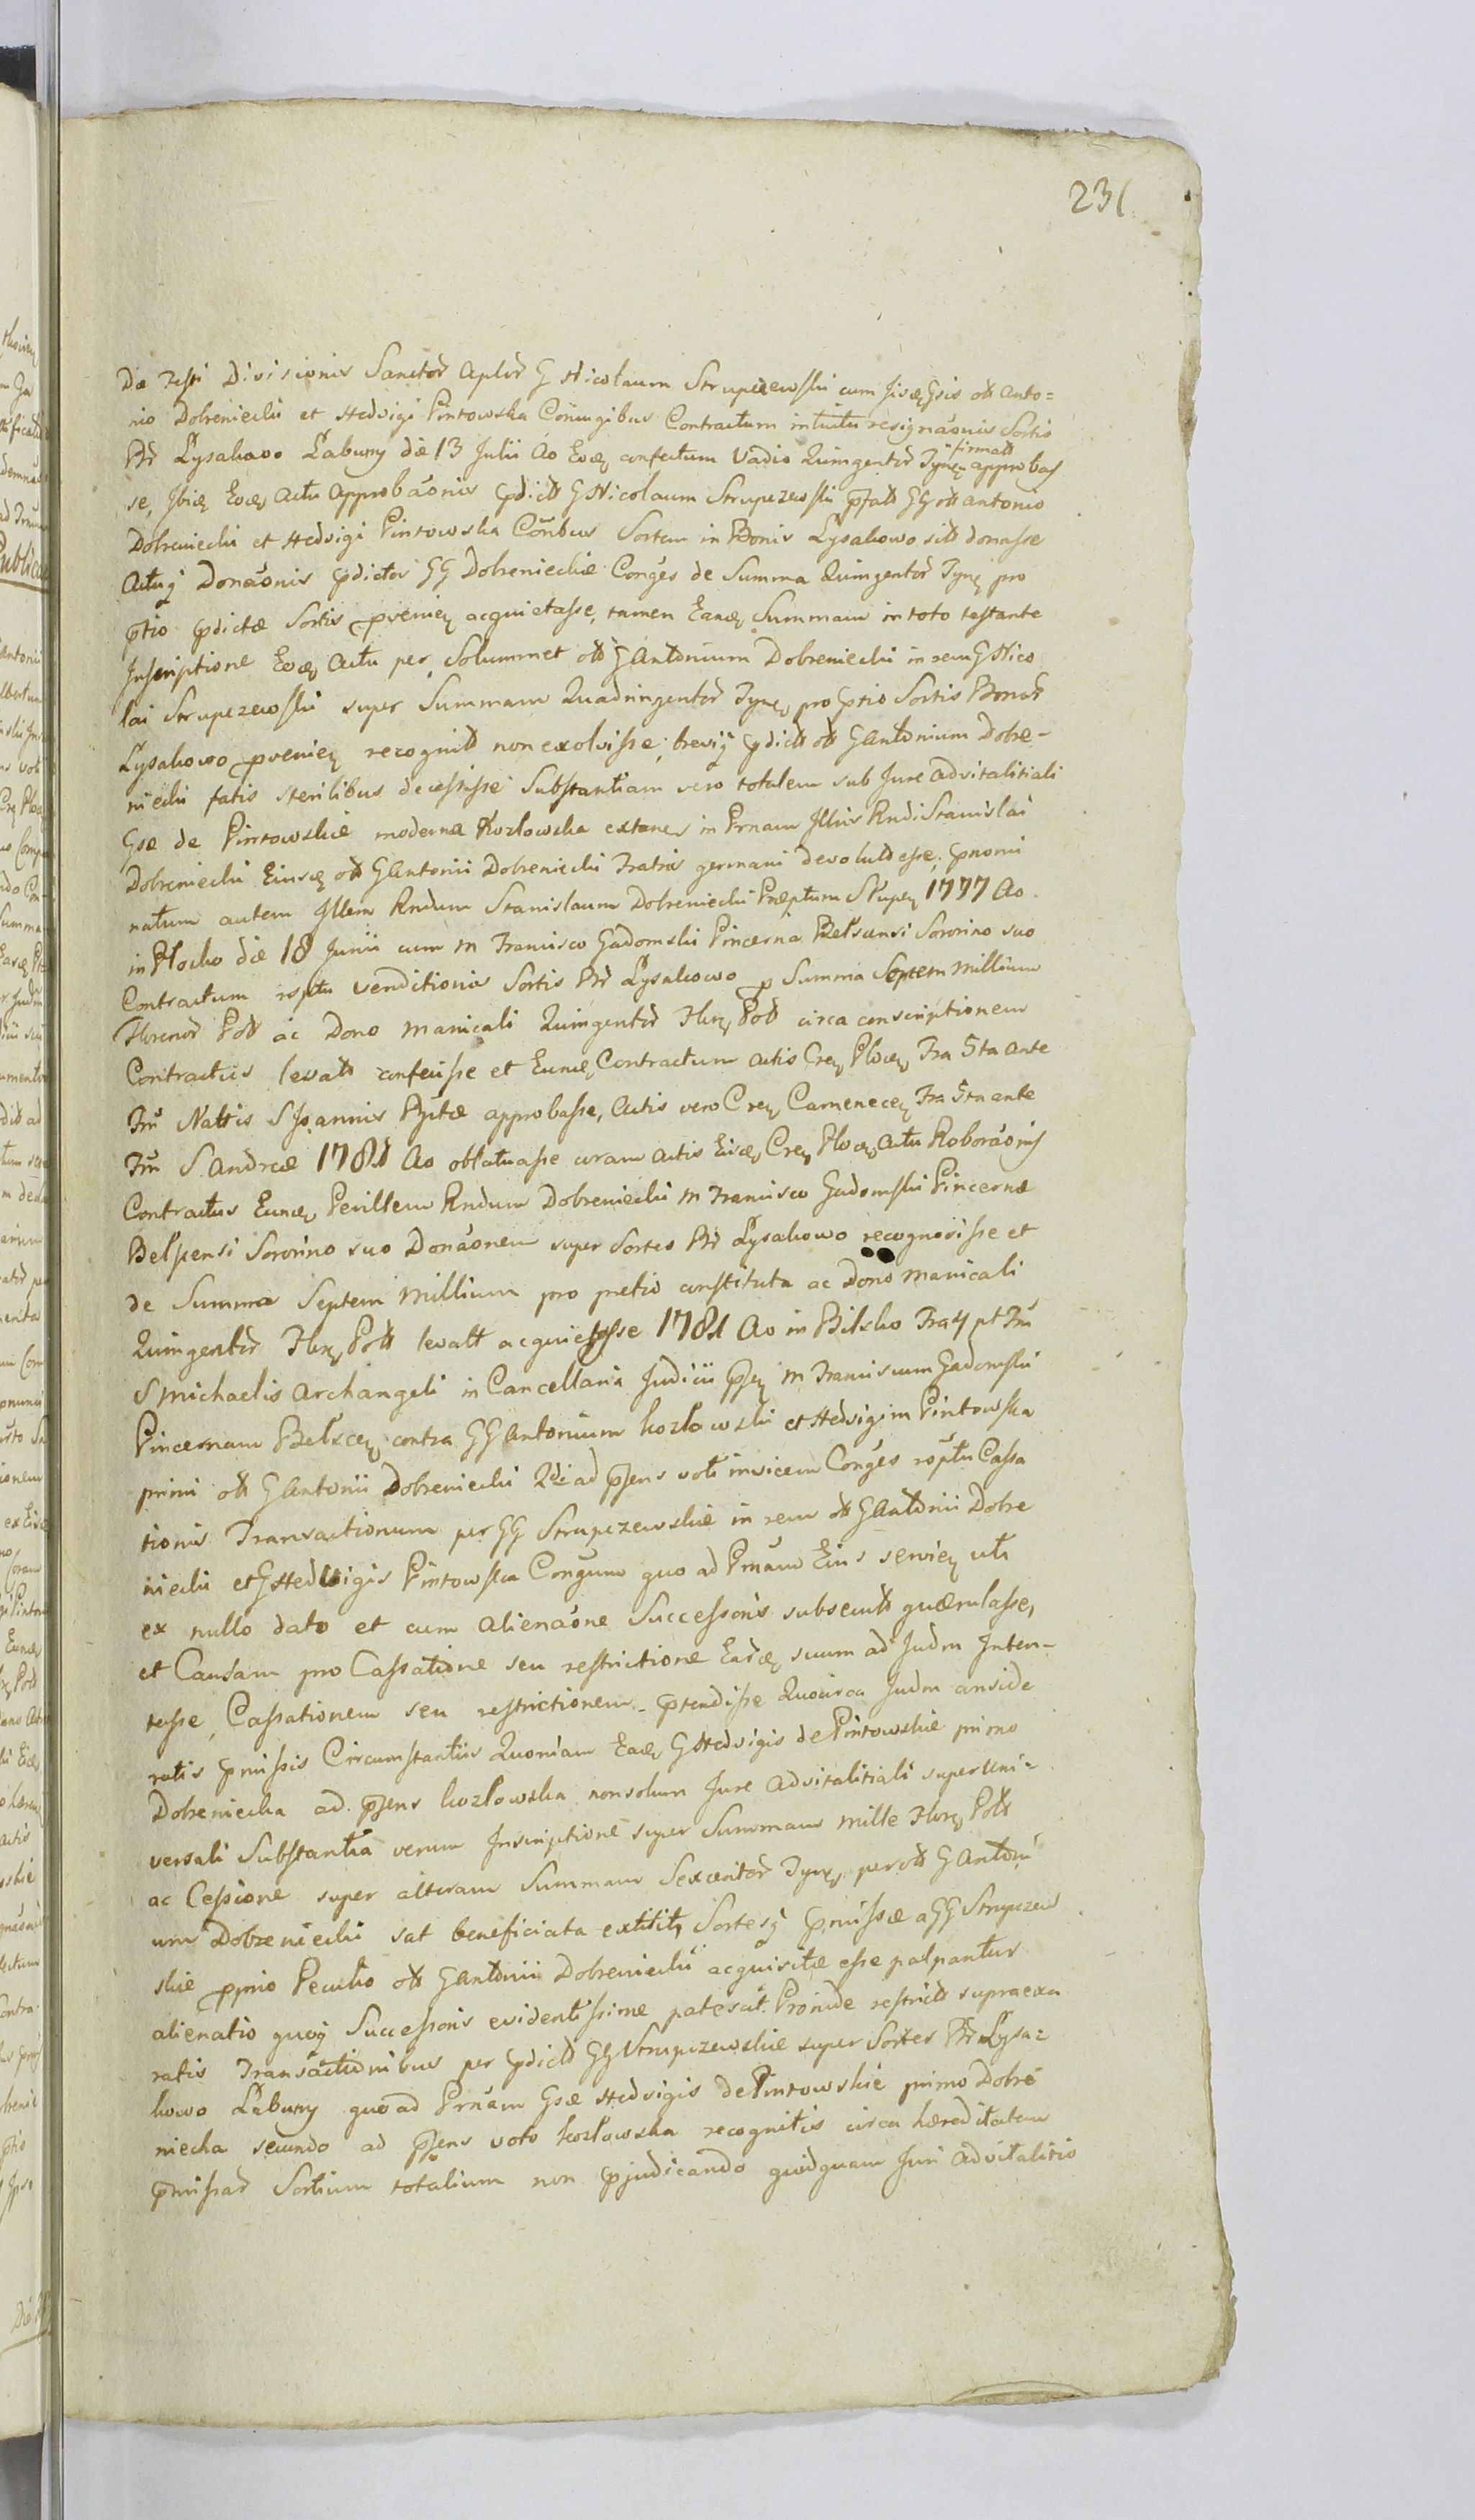 231
Da Festi Divisionis Sanctor Aplor G Nicolaum Strupczewski cum iisdem Gsis olt Anto=
nio Dobrzniecki et Hedvigi Pintowska Coniugibus Contractum intuitu resignaonis Sortis
Br Lysakowo Łabuny die 13 Julii Ao Eodem confectum Vadio Quingentor Tynf firmatt approbas
se, Ibidem Eodem Actu Approbaonis pdictt G Nicolaum Strupczewski pfatt GG olt Antonio
Dobrzniecki et Hedvigi Pintowska Conbus Sortem in Bonis Lysakowo sitt donasse
Actuq Donaonis pdictos GG Dobrznieckie Conges de Summa Quingentor Tynf pro
ptio pdictae Sortis pvenien acquietasse, tamen Eandem Summam in toto testante
Inscriptione Eodem Actu per Solummet olt G Antonium Dobrzniecki in rem G Nico
lai Strupczewski super Summam Quadringentor Tynf pro ptio Sortis Bonor
Lysakowo pvenien recognitt non exolvisse; breviq pdictt olt G Antonium Dobrz-
niecki fatis sterilibus decessisse Substantiam vero totalem sub Jure advitalitiali
Gsae de Pintowskie modernae Kozłowska extanen in Prnam Illius Rndi Stanislai
Dobrzniecki Eiusdem olt G Antonii Dobrzniecki Fratris germani devolutt esse, pnomi
natum autem Illem Rndum Stanislaum Dobrzniecki Praeptum Słupen 1777 Ao
in Płocko die 18 Junii cum M Francisco Gadomski Pincerna Bełsensi Sororino suo
Contractum rsptu venditionis Sortis Br Lysakowo p Summa Septem Millium
Florenor Poll ac Dono manicali Quingentor Flor Poll circa conscriptionem
Contractus levatt confecisse et Eundem Contractum actis Cren Plocen Fra 5ta ante
Fm Nattis S Joannis Bptae approbasse, Actis vero Cren Camenecen Fra 5ta ante
Fm S. Andreae 1781 Ao oblatuasse coram actis Eisdem Cren Plocen Actu Roboraonis
Contractus Eundem Perillem Rndum Dobrzniecki M Francisco Gadomski Pincernae
Bełsensi Sororino suo Donaonem super Sortes Br Lysakowo recognovisse et
de Summa Septem Millium pro pretio constituta ac Dono manicali
Quingentor Flor Poll levatt acquietasse 1781 Ao in Bilsko Fra 4 pt Fm
S Michaelis Archangeli in Cancellaria Judicii psen M Franciscum Gadomski
Pincernam Bełscen contra GG Antonium Kozłowski et Hedvigim Pintowska
primi olt G Antonii Dobrzniecki 2di ad psens voti invicem Conges rsptu Cassa
tionis Transactionum per GG Strupczewskie in rem olt G Antonii Dobrz
niecki et G Hedvigis Pintowska Congum quo ad Prnam Eius servien uti
ex nullo dato et cum alienaone Successoris subsecutt quaerulasse,
et Causam pro Cassatione seu restrictione Eardem suum ad Judm Inten-
tasse, Cassationem seu restrictionem ptendisse Quocirca Judm conside
ratis pmissis Circumstantiis Quoniam Eadem G Hedvigis de Pintowskie primo
Dobrzniecka ad psens Kozłowska non solum Jure Advitalitiali super Uni=
versali Substantia verum Inscriptione super Summam Mille Flor Poll
ac Cessione super alteram Summam Sexcentor Tynf per olt G Antoni
um Dobrzniecki sat beneficiata extitit, Sortesq pmissae a GG Strupczew
skie pprio Peculio olt G Antonii Dobrznieckii acquisitae esse palpantur
alienatio quoq Successoris evidentissime patescit. Proinde restrictt supra exa
ratis Transactionibus per pdictt GG Strupczewskie super Sortes Br Lysa=
kowo Łabuny quo ad Prnam Gsae Hedvigis de Pintowskie primo Dobrz
niecka secundo ad psens voto Kozłowska recognitis circa haereditatem
pmissar Sortium totalium non pjudicando quidquam Juri Advitalitio